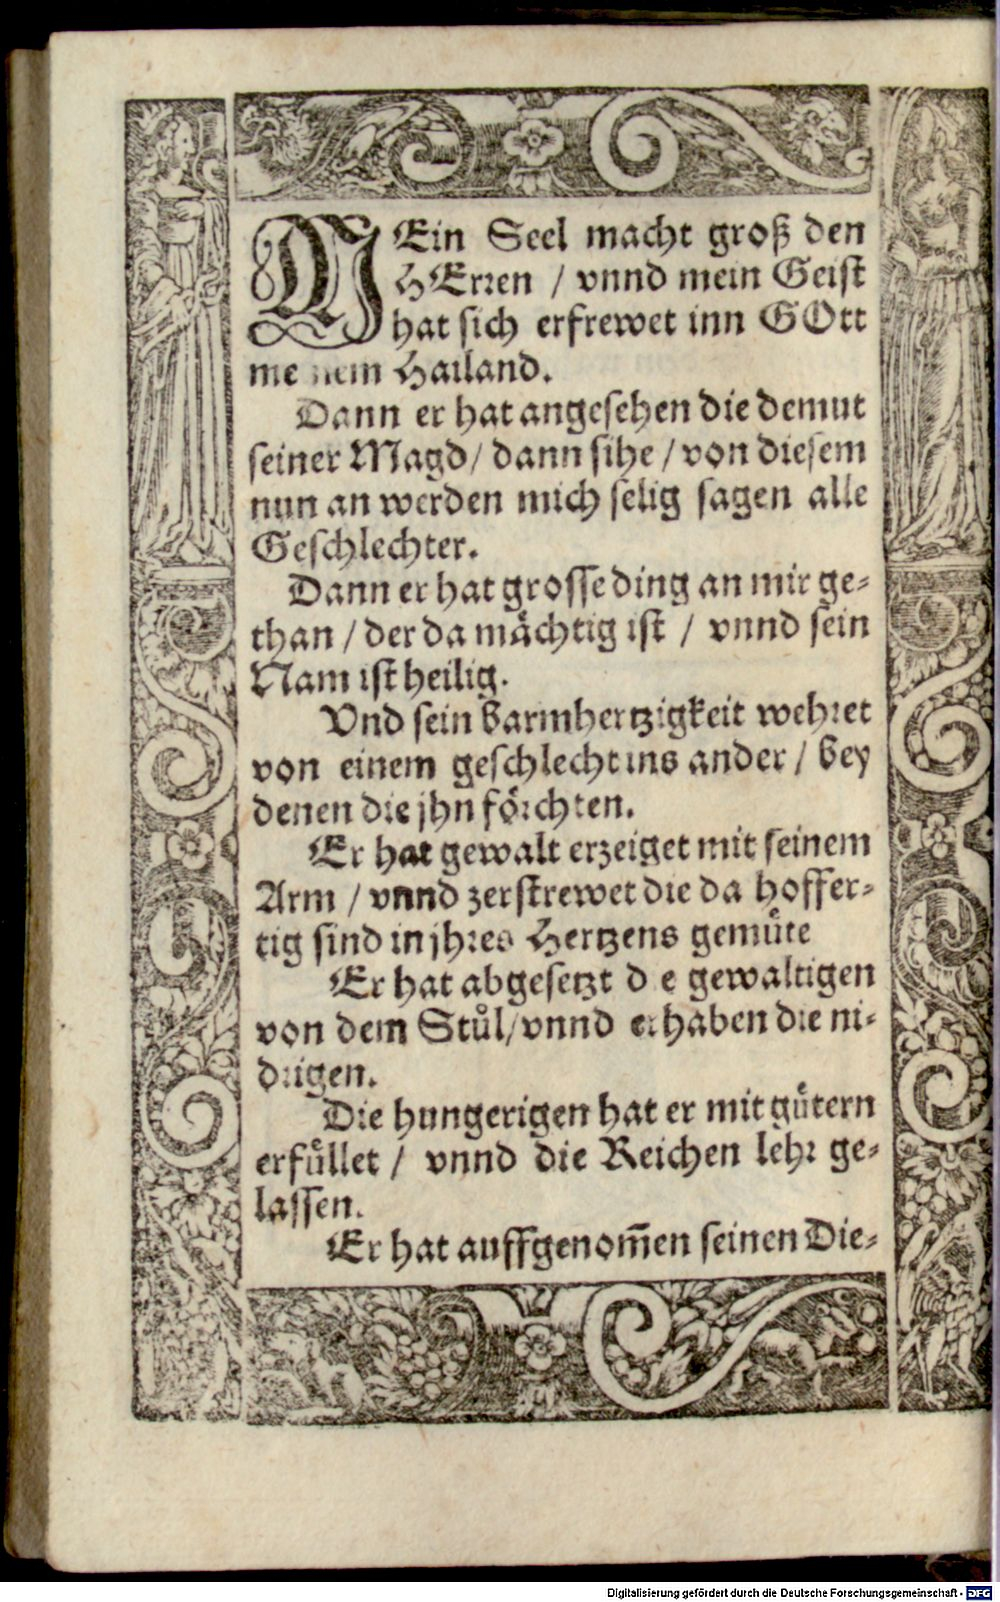 MEin Seel macht groß den
HErren / vnnd mein Geist
hat sich erfrewet inn GOtt
meinem Hailand.
Dann er hat angesehen die demut
seiner Magd / dann sihe / von diesem
nun an werden mich selig sagen alle
Geschlechter.
Dann er hat grosse ding an mir ge-
than / der da maͤchtig ist / vnnd sein
Nam ist heilig.
Vnd sein barmhertzigkeit wehret
von einem geschlecht ins ander / bey
denen die jhn foͤrchten.
Er hat gewalt erzeiget mit seinem
Arm / vnnd zerstrewet die da hoffer-
tig sind in jhres Hertzens gemuͤte
Er hat abgesetzt die gewaltigen
von dem Stuͤl / vnnd erhaben die ni-
drigen.
Die hungerigen hat er mit guͤtern
erfuͤllet / vnnd die Reichen lehr ge-
lassen.
Er hat auffgenom̄en seinen Die-
Digitalisierung gefördert durch die Deutsche Forschungsgemeinschaft - DFG